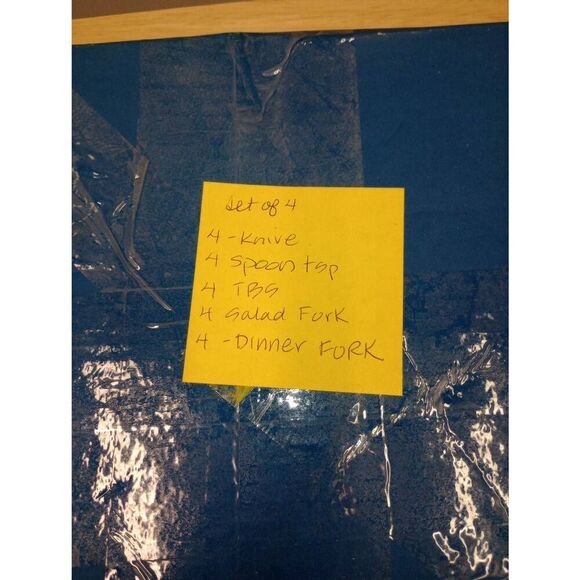 Set of 4
4 - Knive
4 spoon tsp
4 TBS
4 Salad Fork
4 - Dinner FORK